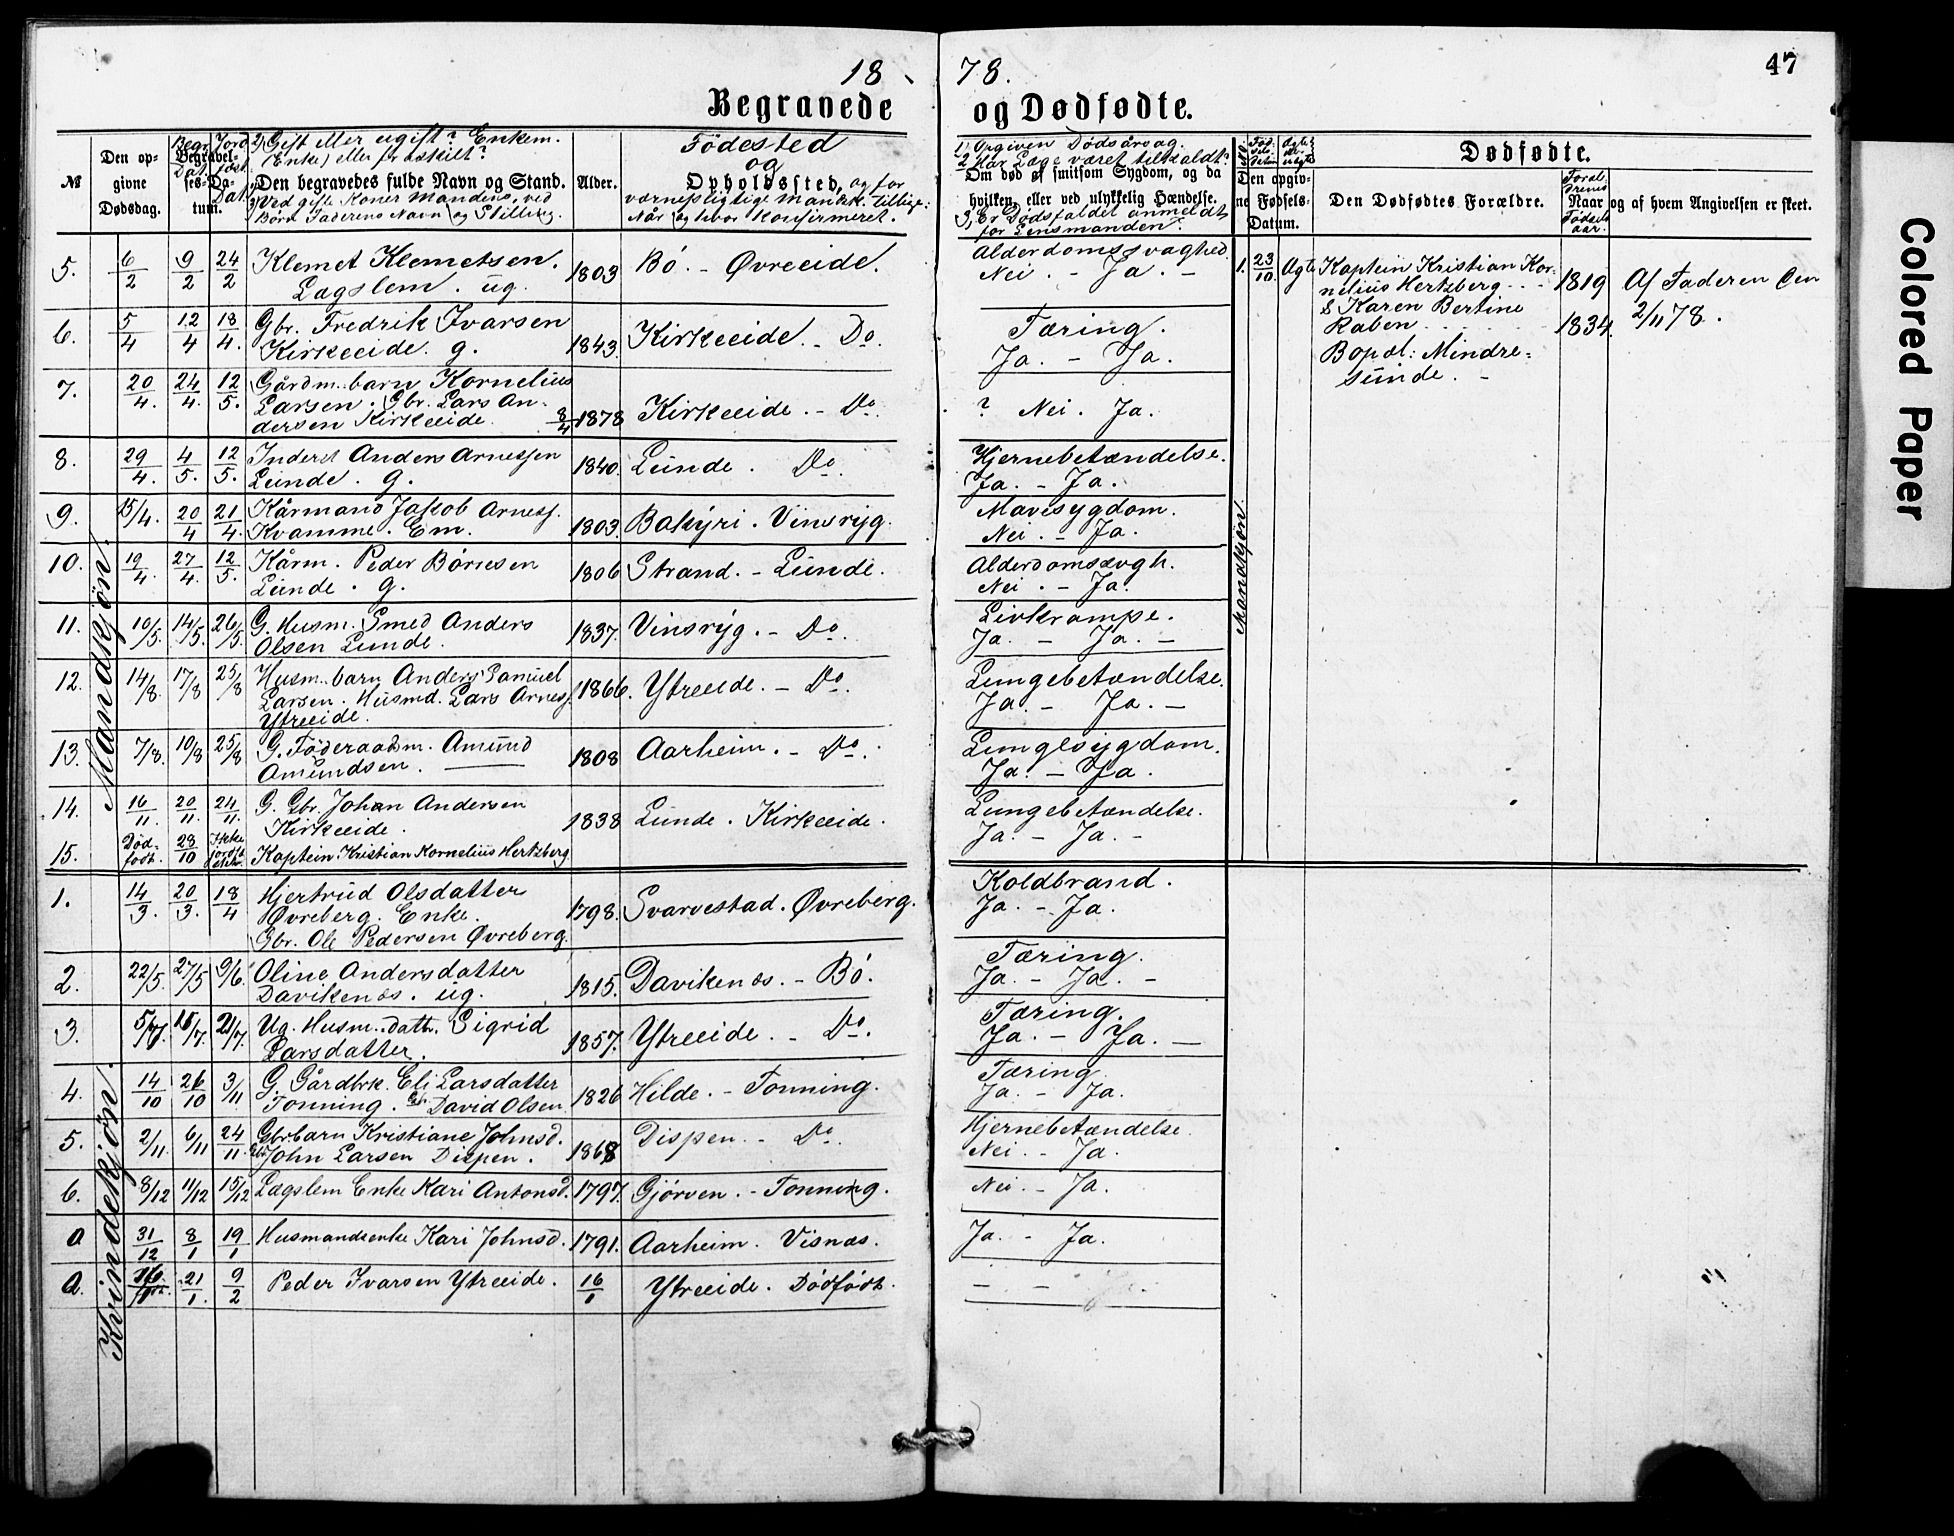 18 78.
47
Begravede og Dødfødte.
№
Den op-
givne
Dødsdag.
Begravel-
ses-Da-
tum.
Begr.
Dat.
Jord
fæst.
Dat.
2) Gift eller ugift? Enkem.
(Enke) eller fraskilt?
Den begravedes fulde Navn og Stand.
Ved gifte Koner Mandens, ved
Børn Faderens Navn og Stilling.
Alder.
Födested
og
Opholdssted, og for
værnepligtige Mandsk. tillige:
Når og hvor Konfirmeret.
1) Opgiven Dødsårsag.
2 Har Læge været tilkaldt?
Om død af smitsom Sygdom, og da
hvilken, eller ved ulykkelig Hændelse.
3, Er Dødsfaldet anmeldt
for Lensmanden?
Dødfødte.
Den opgiv-
ne Fødsels-
Datum.
Den Dødfødtes Forældre.
Naar og af hvem Angivelsen er skeet.
Mandkjøn.
5. 6/2 9/2 24/2 Klemet Klemetsen. 1803 Bö. - Øvreeide. Alderdomssvaghed
Lægslem. ug. Nei. - Ja. -
6. 5/4 12/4 18/4. Gbr. Fredrik Ivarsen 1843. Kirkeeide. - Do. Tæring.
Kirkeeide. g. Ja. - Ja.
7. 20/4. 24/4. 12/5. Gårdm. barn Kornelius
Larsen. Gbr. Lars An-
dersen Kirkeeide. 8/4 1878 Kirkeeide. - Do. ? Nei. Ja.
8. 29/4. 4/5. 12/5. Inderst Anders Arnessen 1840. Lunde. Do. Hjernebetændelse.
Lunde. g. Ja. - Ja.
9. 15/4. 20/4 21/4. Kårmand Jakob Arness. 1803. Bakyri. Vinsryg. Mavesygdom.
Kvamme. Em. Nei. - Ja.
10. 19/4. 27/4. 12/5. Kårm. Peder Börresen 1806 Strand. - Lunde. Alderdomssvgh.
Lunde. g. Nei. - Ja.
11. 10/5. 14/5. 26/5. G. Husm. Smed Anders 1837. Vinsryg. - Do. Livkrampe.
Olsen Lunde. Ja. - Ja. -
12. 14/8. 17/8 25/8 Husm. barn Anders Samuel 1866. Ytreeide. - Do. Lungebetændelse.
Larsen. Husmd. Lars Arness. Ja. - Ja. -
Ytreeide.
13. 7/8. 10/8 25/8 G. Föderaadsm. Amund 1808 Aarheim. - Do. Lungesygdom.
Amundsen. Ja. - Ja.
14. 16/11. 20/11. 24/11. G. Gbr. Johan Andersen 1838 Lunde. Kirkeeide. Lungebetændelse.
Kirkeeide. Ja. - Ja. -
15. Død-
födt. 28/10 Ikke Kaptein Kristian Kornelius Hertzberg
Kvindekjøn.
1. 14/3. 20/3. 18/4 Hjertrud Olsdatter 1798. Svarvestad. Øvreberg. Koldbrand.
Øvreberg. Enke. Ja. - Ja.
Gbr. Ole Pedersen Øvreberg.
2. 22/5. 27/5 9/6. Oline Andersdatter 1815. Davikenæs. - Bö. Tæring.
Davikenæs. ug. Ja. - Ja. -
3. 5/7. 15/7. 21/7. Ug. Husm. datt. Sigrid 1857. Ytreeide. - Do. Tæring.
Larsdatter. Ja. - Ja. -
4. 14/10 26/10 3/11 G. Gårdbrk. Eli Larsdatter 1826 Hilde. - Tonning. Tæring.
Tonning. Gbr. David Olsen Ja. - Ja.
5. 2/11. 6/11 24/11. Gbrbarn Kristiane Johnsd. 1868 Dispen. - Do. Hjernebetændelse.
Gbr. John Larsen Dispen. Nei. - Ja.
6. 8/12 11/12 15/12 Lægslem Enke Kari Antonsd. 1797. Gjörven. - Tonning. Nei. - Ja.
a 31/12 8/1 19/1 Husmandsenke Kari Johnsd. 1791. Aarheim. Visnæs. Ja. - Ja.
a. 21/1. 9/2 Peder Ivarsen Ytreeide. 16/1 Ytreeide. Dödfödt. - -
Mandkjøn.
1. 23/10. Ægte Kaptein Kristian Kor-
nelius Hertzberg - - 1819 Af Faderen den
& Karen Bertine 2/11 78.
Raben 1834.
Bopæl: Mindre-
sunde. -
Colored Paper